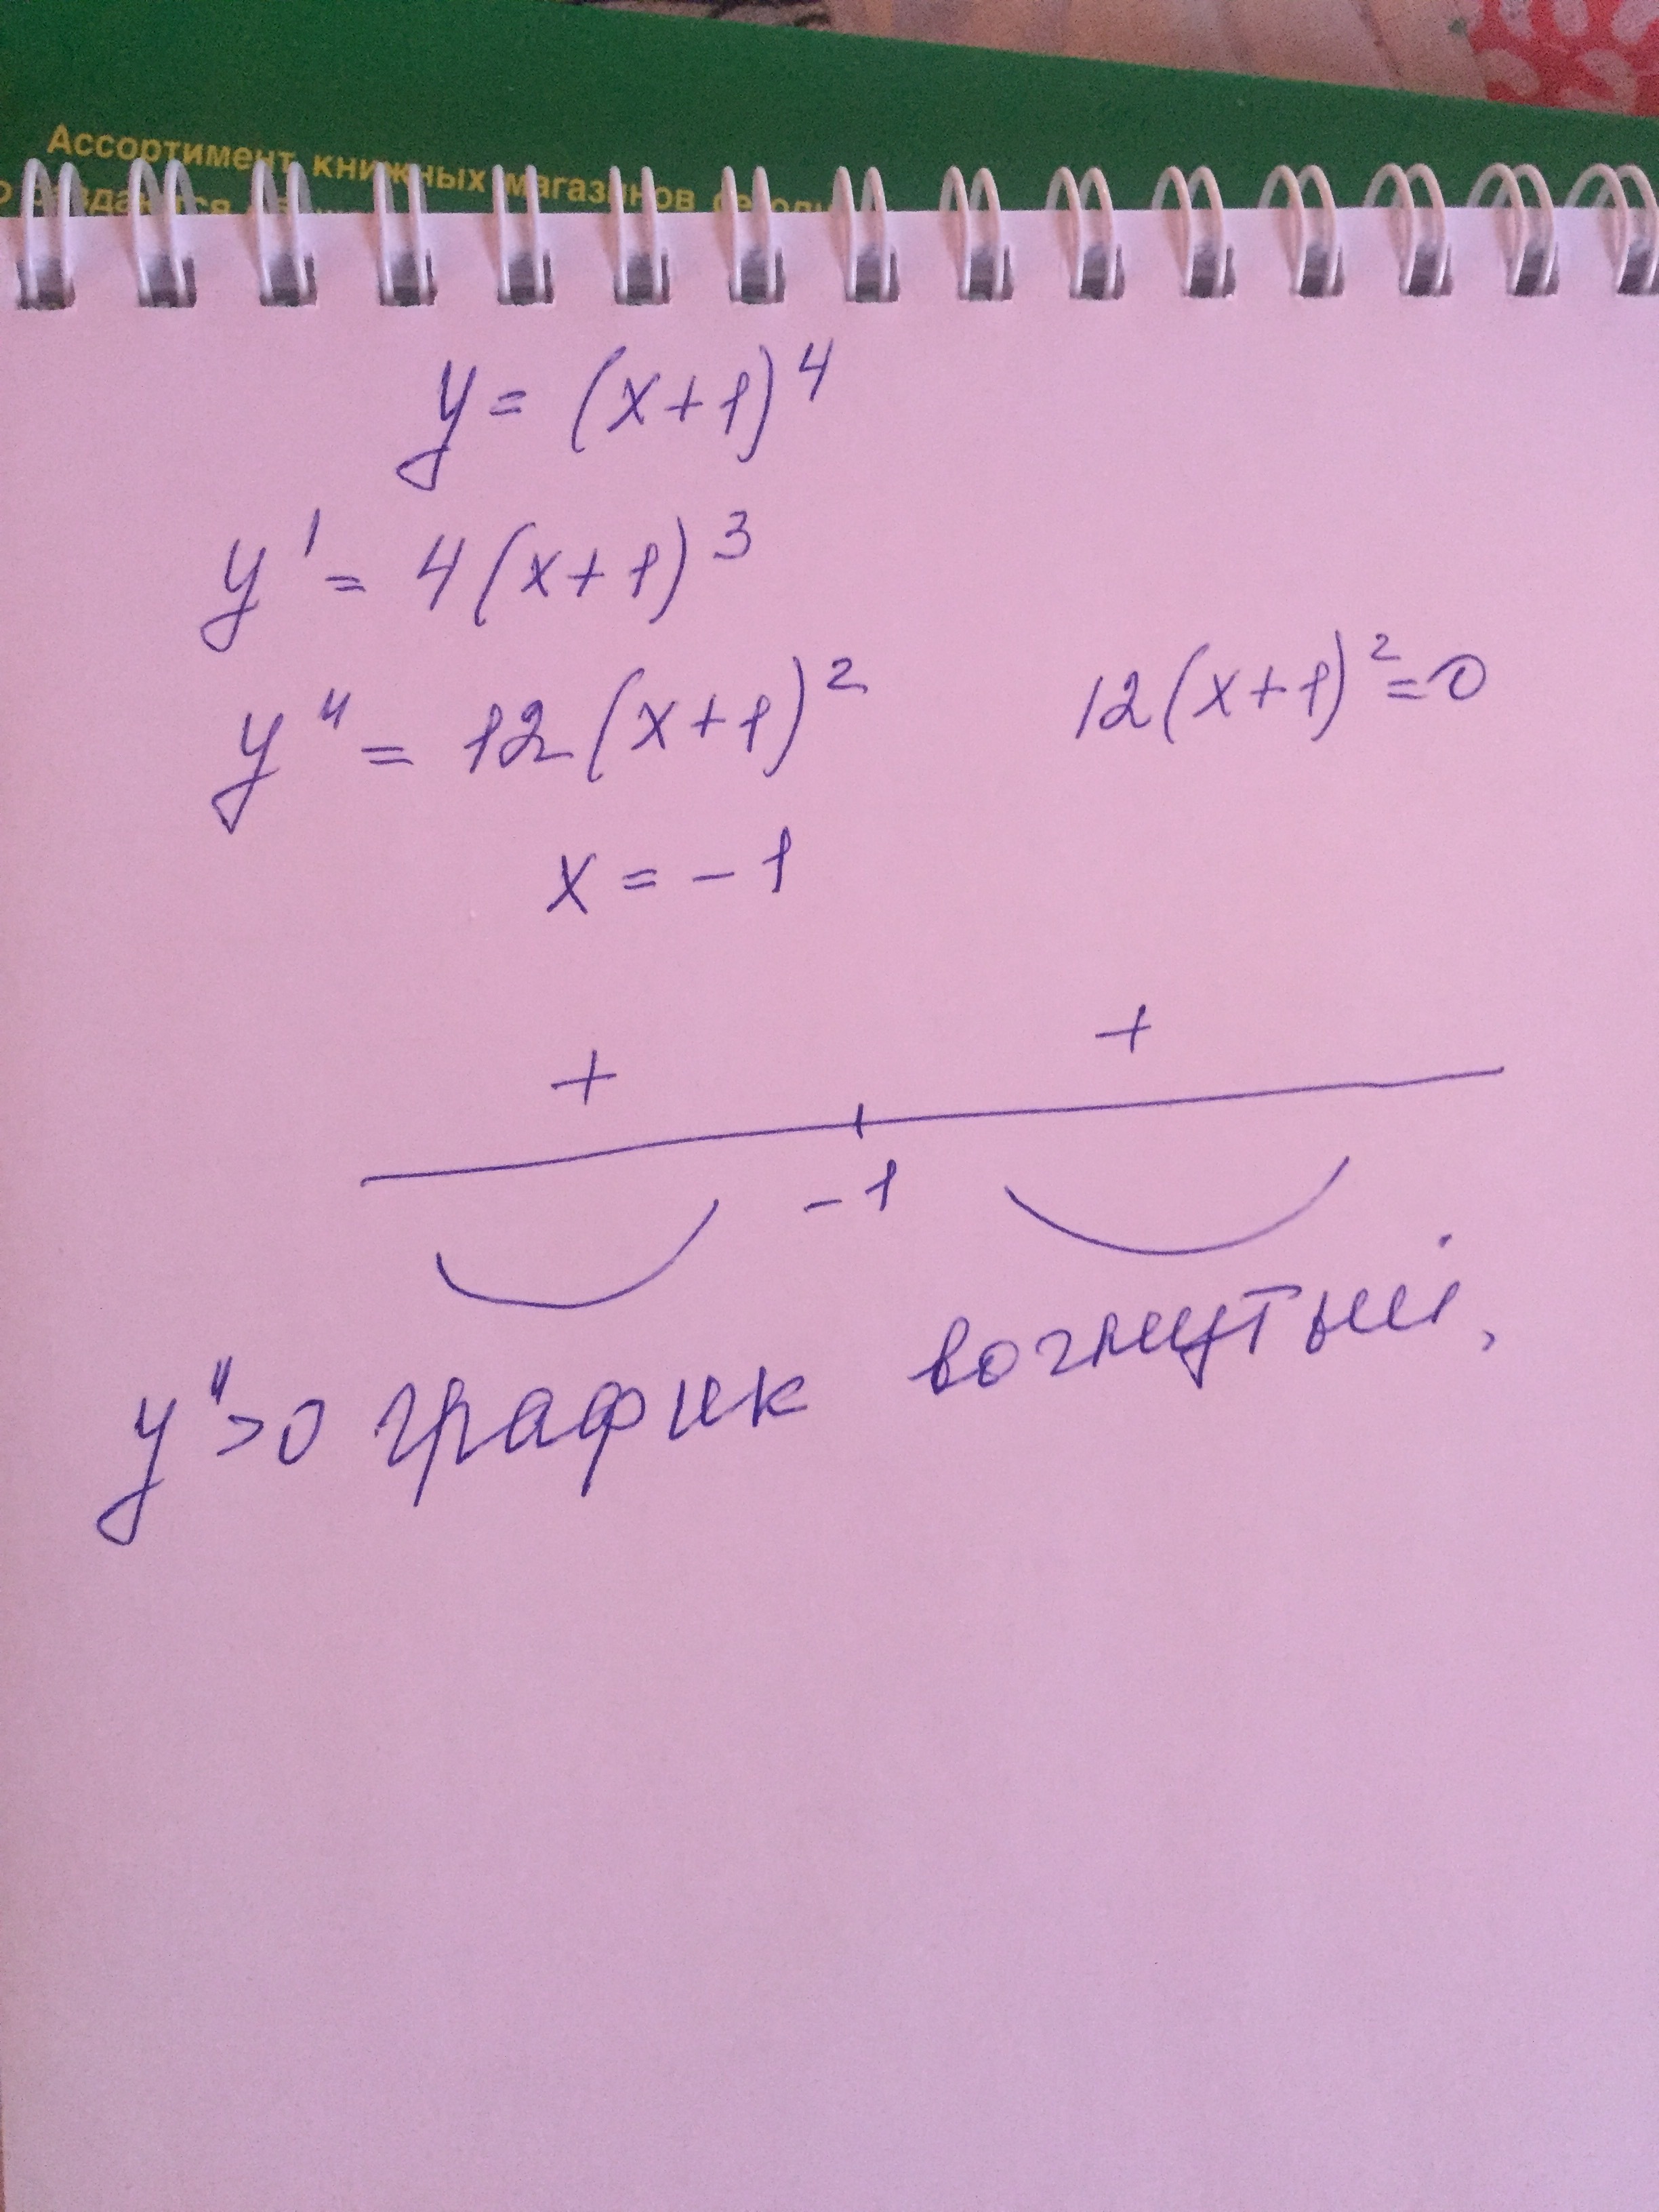 Ассортимент книжных магазинов
y = (x+1)⁴
y' = 4(x+1)³
y'' = 12(x+1)² 12(x+1)²=0
x = -1
+ +
-1
y''>0 график вогнутый,